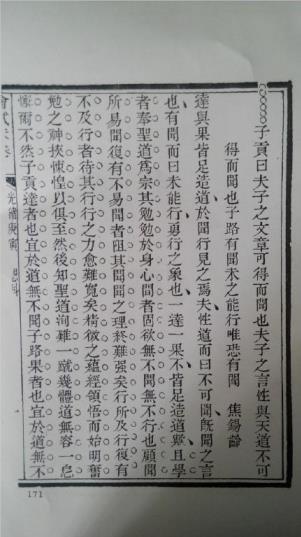 子貢曰夫子之文章可得而聞也夫子之言性與天道不可
得而聞也子路有聞未之能行唯恐有聞　焦錫齡
達與果皆足造道於聞行見之焉夫性道而曰不可聞既聞之言
也有聞而曰未能行勇行之象也一達一果不皆足造道歟且學
者奉聖道為宗其勉勉於身心間者固欲無不聞無不行也顧聞
所易聞復有不易聞者阻其聞聞之理終難強矣行所及行復有
不及行者待其行行之力愈難寬矣精微之蘊經領悟而始明奮
勉之神挾悚惶以俱至然後知聖道洵難一蹴幾體道無容一息
懈爾不然子貢達者也宜於道無不聞子路果者也宜於道無不
會試朱卷　光緒庚寅
171